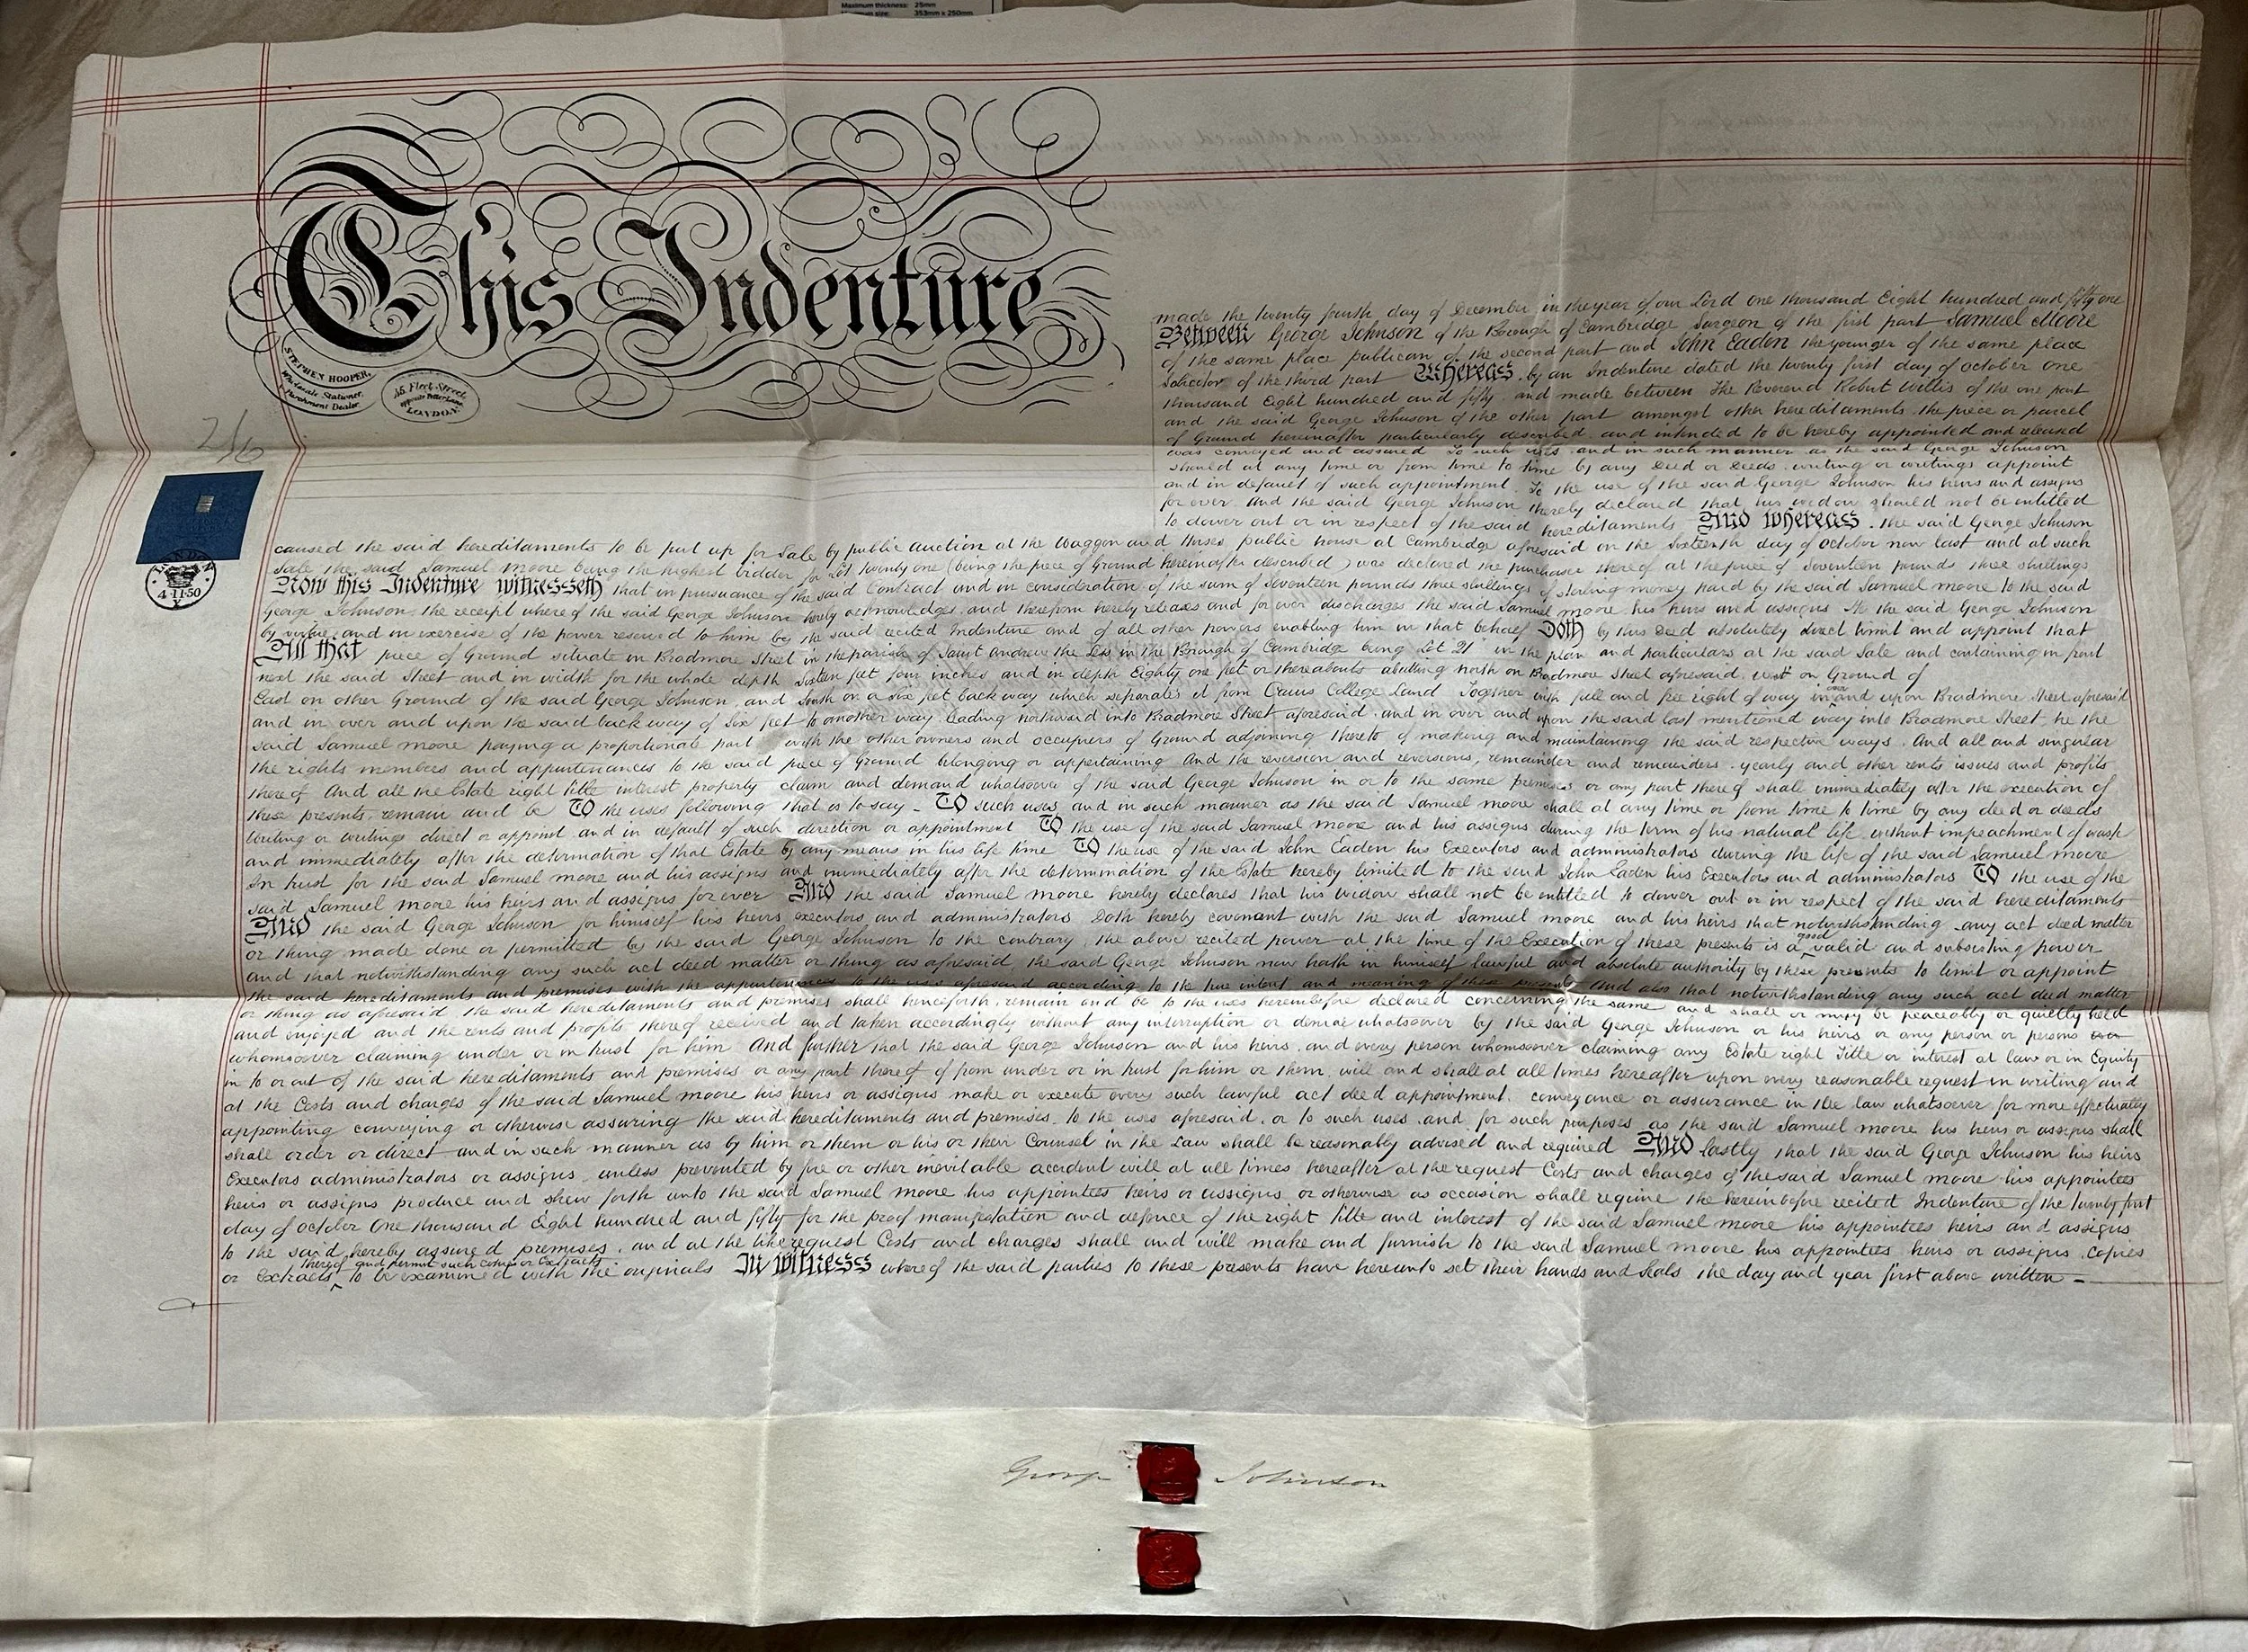 Maximum thickness: 25mm
Maximum size: 353mm x 250mm
This Indenture
STEPHEN HOOPER,
Wholesale Stationer,
Parchment Dealer.
45 Fleet Street,
opposite Fetter Lane,
LONDON.
2/6
LONDON
4·11·50
made the twenty fourth day of December in the year of our Lord one thousand Eight hundred and fifty one
Between George Johnson of the Borough of Cambridge Surgeon of the first part Samuel Moore
of the same place publican of the second part and John Eaden the younger of the same place
Solicitor of the third part Whereas by an Indenture dated the twenty first day of October one
thousand Eight hundred and fifty and made between The Reverend Robert Willis of the one part
and the said George Johnson of the other part amongst other hereditaments the piece or parcel
of Ground hereinafter particularly described and intended to be hereby appointed and released
was conveyed and assured To such uses and in such manner as the said George Johnson
should at any time or from time to time by any Deed or Deeds writing or writings appoint
and in default of such appointment To the use of the said George Johnson his heirs and assigns
for ever And the said George Johnson thereby declared that his widow should not be entitled
to dower out or in respect of the said hereditaments And whereas the said George Johnson
caused the said hereditaments to be put up for Sale by public auction at the Waggon and Horses public house at Cambridge aforesaid on the Sixteenth day of October now last and at such
sale the said Samuel Moore being the highest bidder for Lot Twenty one (being the piece of Ground hereinafter described) was declared the purchaser thereof at the price of Seventeen pounds three shillings
Now this Indenture witnesseth that in pursuance of the said Contract and in consideration of the sum of Seventeen pounds three shillings of sterling money paid by the said Samuel Moore to the said
George Johnson the receipt where of the said George Johnson hereby acknowledges and therefrom hereby releases and for ever discharges the said Samuel Moore his heirs and assigns He the said George Johnson
by virtue and in exercise of the power reserved to him by the said recited Indenture and of all other powers enabling him in that behalf Doth by this Deed absolutely direct limit and appoint that
All that piece of Ground situate in Bradmore Street in the parish of Saint Andrew the Less in The Borough of Cambridge being Lot 21 in the plan and particulars at the said Sale and containing in front
next the said Street and in width for the whole depth Sixteen feet four inches and in depth Eighty one feet or thereabouts abutting north on Bradmore Street aforesaid west on Ground of
East on other Ground of the said George Johnson and South on a Six feet back way which separates it from Caius College Land Together with full and free right of way in over and upon Bradmore Street aforesaid
and in over and upon the said back way of Six feet to another way leading northward into Bradmore Street aforesaid and in over and upon the said last mentioned way into Bradmore Street he the
said Samuel Moore paying a proportionate part with the other owners and occupiers of Ground adjoining thereto of making and maintaining the said respective ways And all and singular
the rights members and appurtenances to the said piece of Ground belonging or appertaining And the reversion and reversions, remainder and remainders yearly and other rents issues and profits
thereof And all the Estate right title interest property claim and demand whatsoever of the said George Johnson in or to the same premises or any part thereof shall immediately after the execution of
these presents remain and be To the uses following that is to say - To such uses and in such manner as the said Samuel Moore shall at any time or from time to time by any deed or deeds
Writing or writings direct or appoint and in default of such direction or appointment To the use of the said Samuel Moore and his assigns during the term of his natural life without impeachment of wast
and immediately after the determination of that Estate by any means in his life time To the use of the said John Eaden his Executors and administrators during the life of the said Samuel Moore
In trust for the said Samuel Moore and his assigns and immediately after the determination of the Estate hereby limited to the said John Eaden his Executors and administrators To the use of the
said Samuel Moore his heirs and assigns for ever And the said Samuel Moore hereby declares that his widow shall not be entitled to dower out or in respect of the said hereditaments
And the said George Johnson for himself his heirs executors and administrators Doth hereby covenant with the said Samuel Moore and his heirs that notwithstanding any act deed matter
or thing made done or permitted by the said George Johnson to the contrary the above recited power at the time of the Execution of these presents is a good valid and subsisting power
and that notwithstanding any such act deed matter or thing as aforesaid the said George Johnson now hath in himself lawful and absolute authority by these presents to limit or appoint
the said hereditaments and premises with the appurtenances to the uses aforesaid according to the true intent and meaning of these presents And also that notwithstanding any such act deed matter
or thing as aforesaid the said hereditaments and premises shall henceforth remain and be to the uses hereinbefore declared concerning the same and shall or may be peaceably or quietly held
and enjoyed and the rents and profits thereof received and taken accordingly without any interruption or denial whatsoever by the said George Johnson or his heirs or any person or persons
whomsoever claiming under or in trust for him And further that the said George Johnson and his heirs and every person whomsoever claiming any Estate right Title or interest at law or in Equity
in to or out of the said hereditaments and premises or any part thereof from under or in trust for him or them will and shall at all times hereafter upon every reasonable request in writing and
at the Costs and charges of the said Samuel Moore his heirs or assigns make or execute every such lawful act deed appointment conveyance or assurance in the law whatsoever for more effectually
appointing conveying or otherwise assuring the said hereditaments and premises to the uses aforesaid or to such uses and for such purposes as the said Samuel Moore his heirs or assigns shall
shall order or direct and in such manner as by him or them or his or their Counsel in the Law shall be reasonably advised and required And lastly that the said George Johnson his heirs
Executors administrators or assigns unless prevented by fire or other inevitable accident will at all times hereafter at the request Costs and charges of the said Samuel Moore his appointees
heirs or assigns produce and shew forth unto the said Samuel Moore his appointees heirs or assigns or otherwise as occasion shall require the hereinbefore recited Indenture of the twenty first
day of October One thousand Eight hundred and fifty for the proof manifestation and defence of the right title and interest of the said Samuel Moore his appointees heirs and assigns
to the said hereby assured premises and at the like request Costs and charges shall and will make and furnish to the said Samuel Moore his appointees heirs or assigns Copies
or Extracts thereof and permit such copies or Extracts to be examined with the originals In witness whereof the said parties to these presents have hereunto set their hands and seals the day and year first above written -
George Johnson